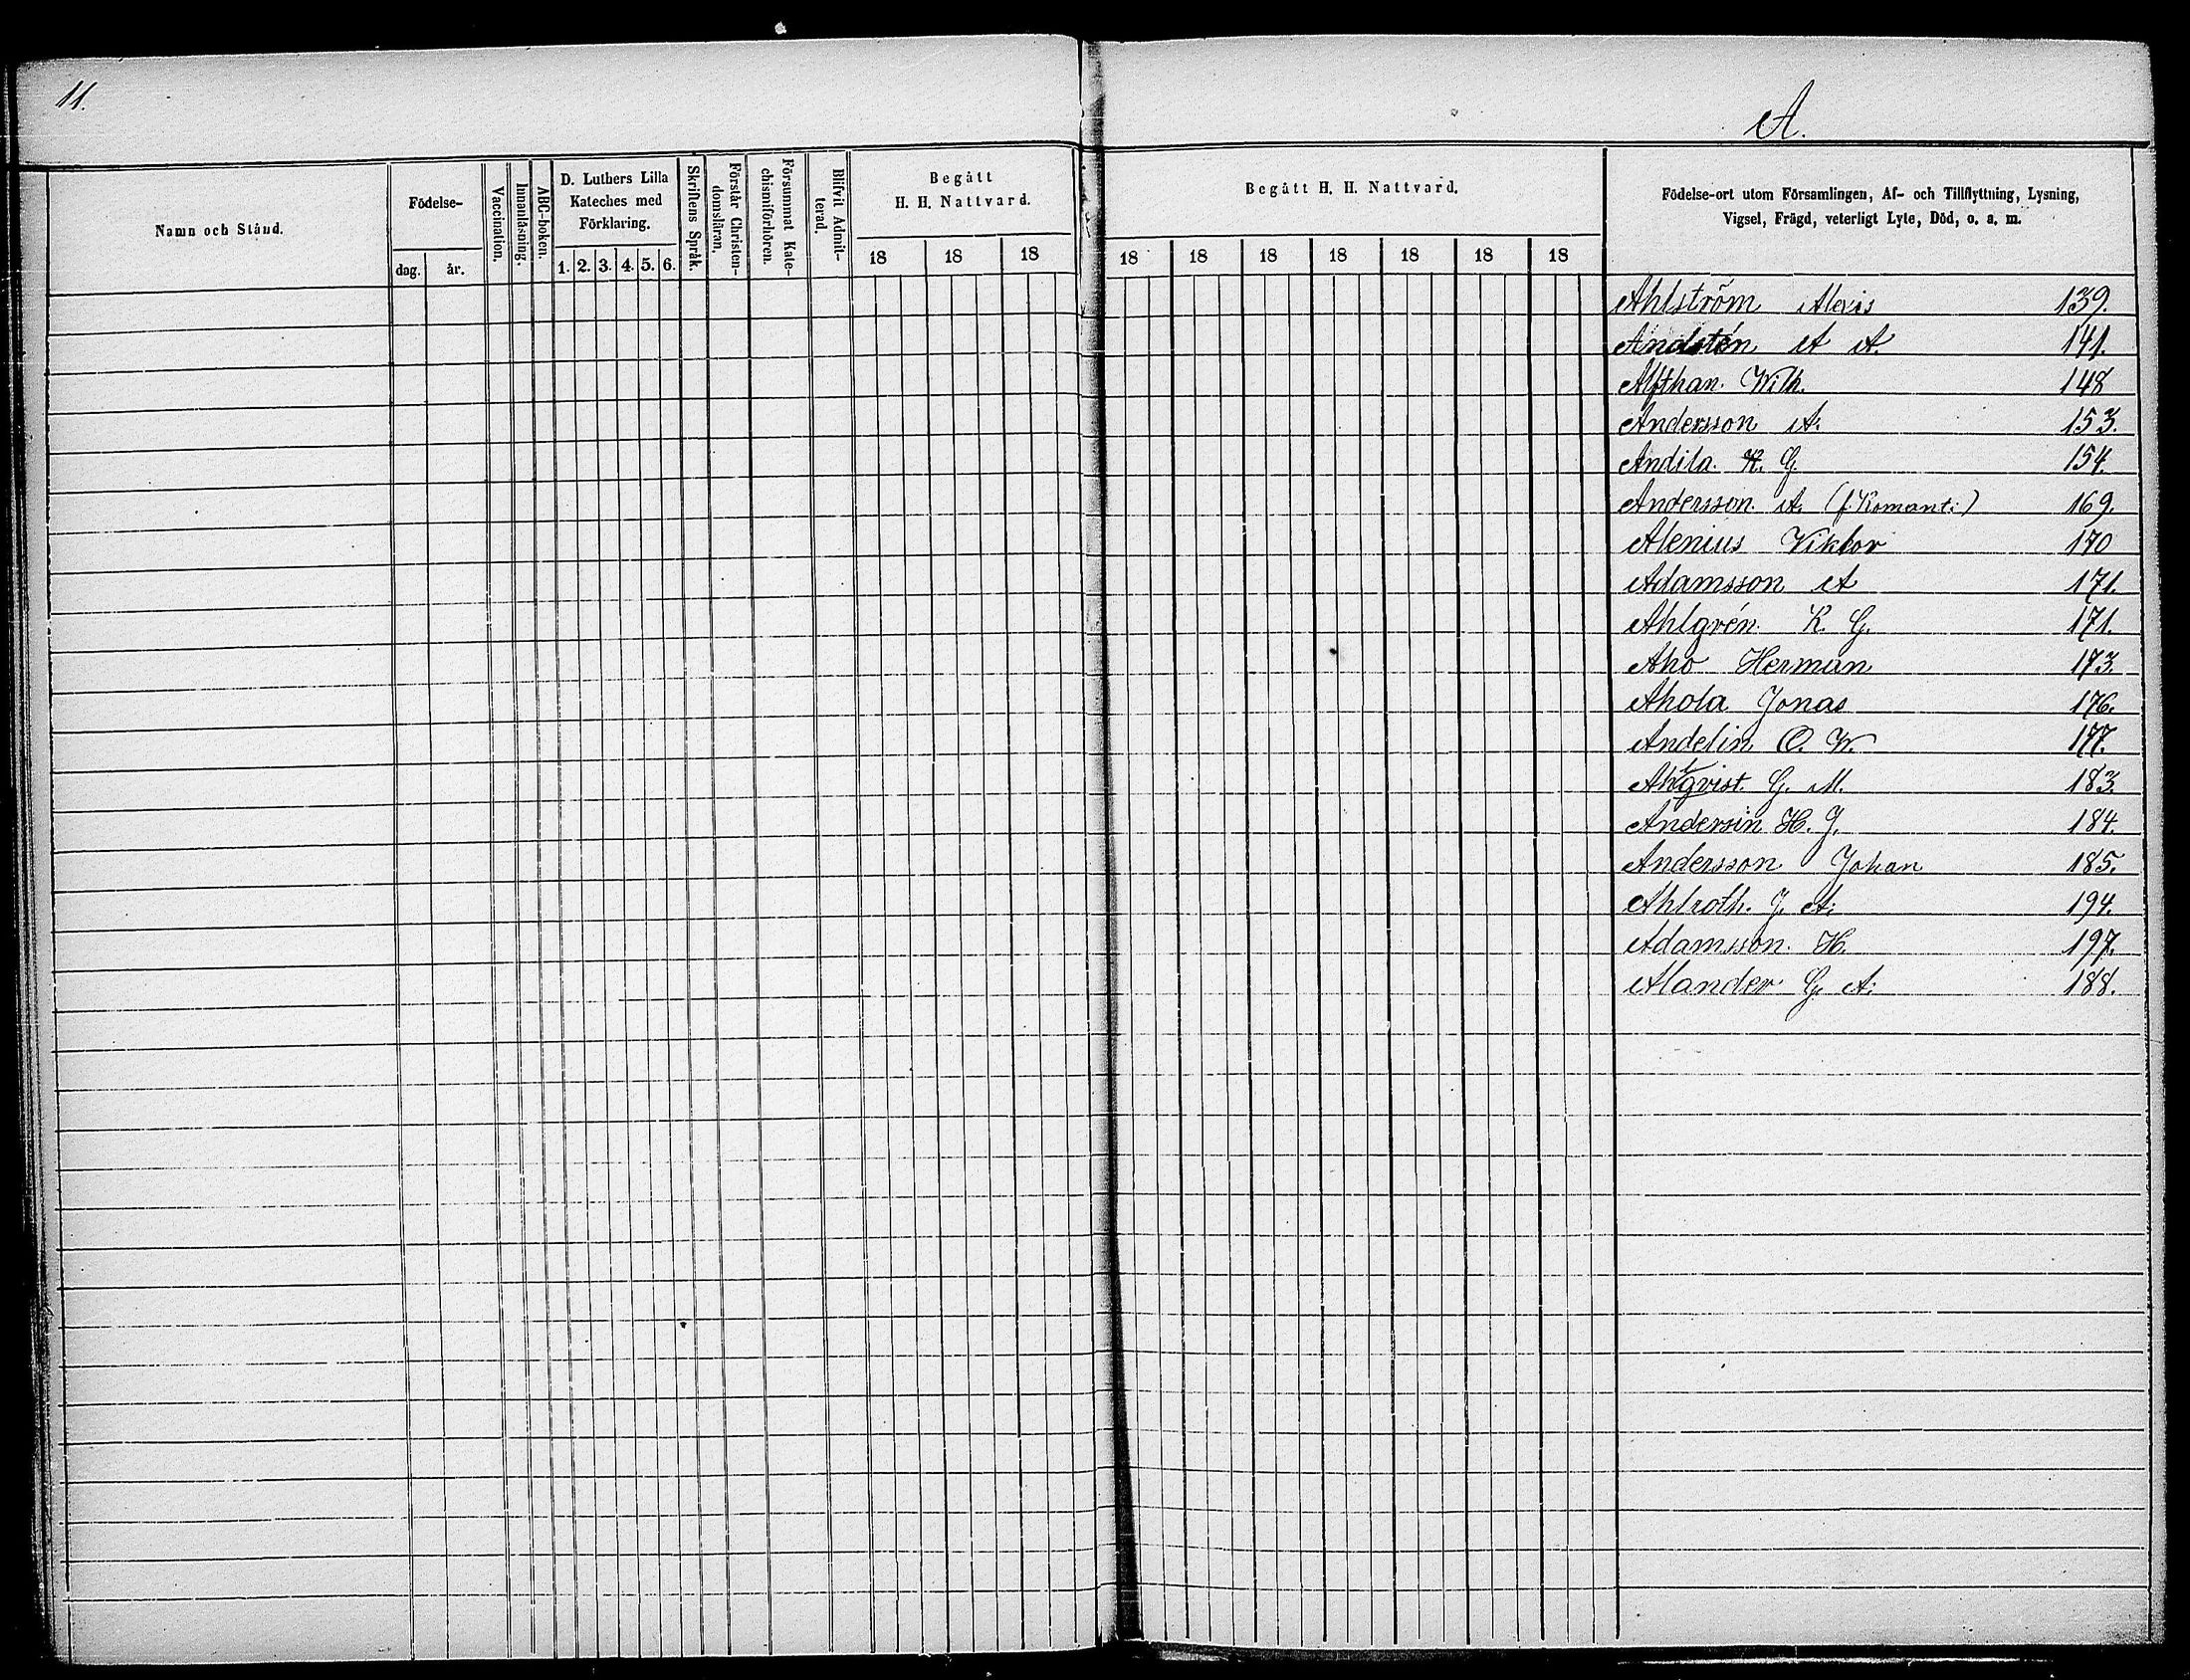 11.
A.
Namn och Stånd.
Födelse-
dag. år.
Vaccination.
Innanläsning.
ABC-boken.
D. Luthers Lilla
Kateches med
Förklaring.
1. 2. 3. 4. 5. 6.
Skriftens Språk.
Förstår Christen-
domsläran.
Försummat Kate-
chismiförhören.
Blifvit Admit-
terad.
Begått
H. H. Nattvard.
18 18 18
Begått H. H. Nattvard.
18 18 18 18 18 18 18
Födelse-ort utom Församlingen, Af- och Tillflyttning, Lysning,
Vigsel, Frägd, veterligt Lyte, Död, o. a. m.
Ahlström Alexis 139.
Andstén A A. 141.
Alfthan. Wilh. 148
Andersson A. 153.
Andila. K. G. 154.
Andersson. A. (f. Komant:) 169.
Alenius Viktor 170
Adamsson A 171.
Ahlgrén. K. G. 171.
Aho Herman 173.
Ahola Jonas 176.
Andelin O. W. 177.
Ahlqvist. G. M. 183.
Andersin H. J. 184.
Andersson Johan 185.
Ahlroth. J. A. 194.
Adamsson. H. 197.
Alander G. A. 188.